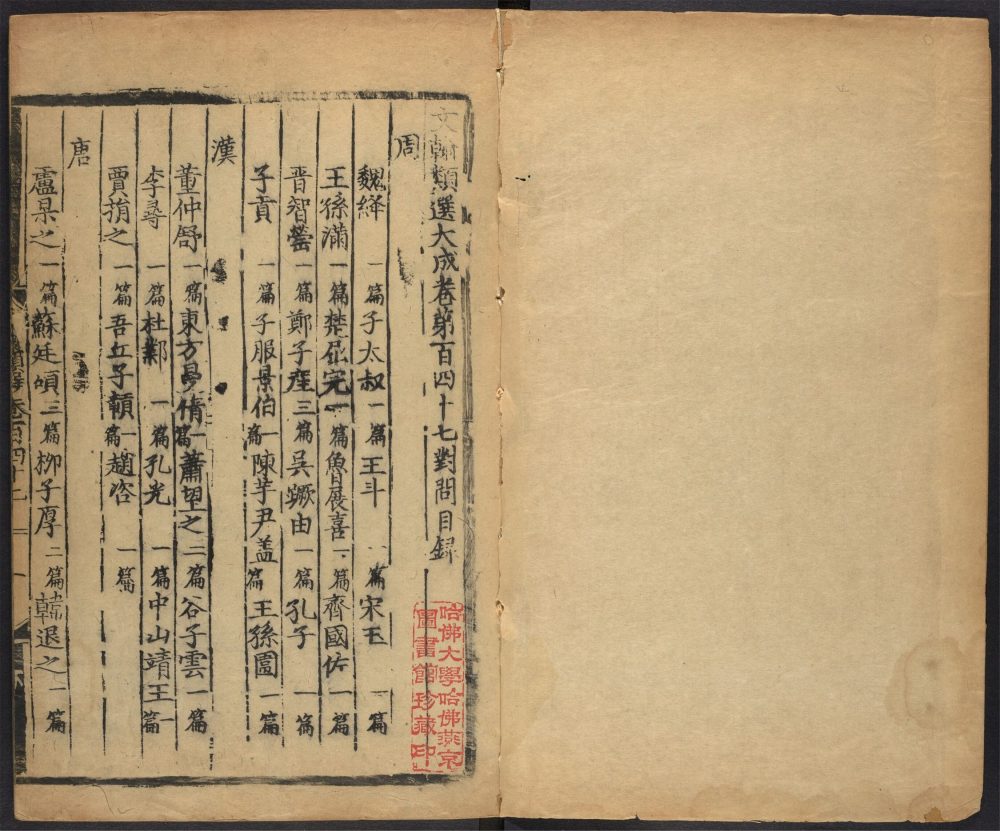 文翰類選大成卷第百四十七對問目録
周
魏絳一篇子太叔一篇王斗一篇宋玉一篇
王孫滿一篇楚屈完一篇魯展喜一篇齊國佐一篇
晉智罃一篇鄭子產三篇吳蹶由一篇孔子一篇
子貢一篇子服景伯一篇陳芋尹盖一篇王孫圉一篇
漢
董仲舒一篇東方曼倩一篇蕭望之二篇谷子雲一篇
李尋一篇杜鄴一篇孔光一篇中山靖王一篇
賈捐之一篇吾丘子贑一篇趙咨一篇
唐
盧杲之一篇蘇廷碩三篇柳子厚二篇韓退之一篇
哈佛大學哈佛燕京
圖書館珍藏印